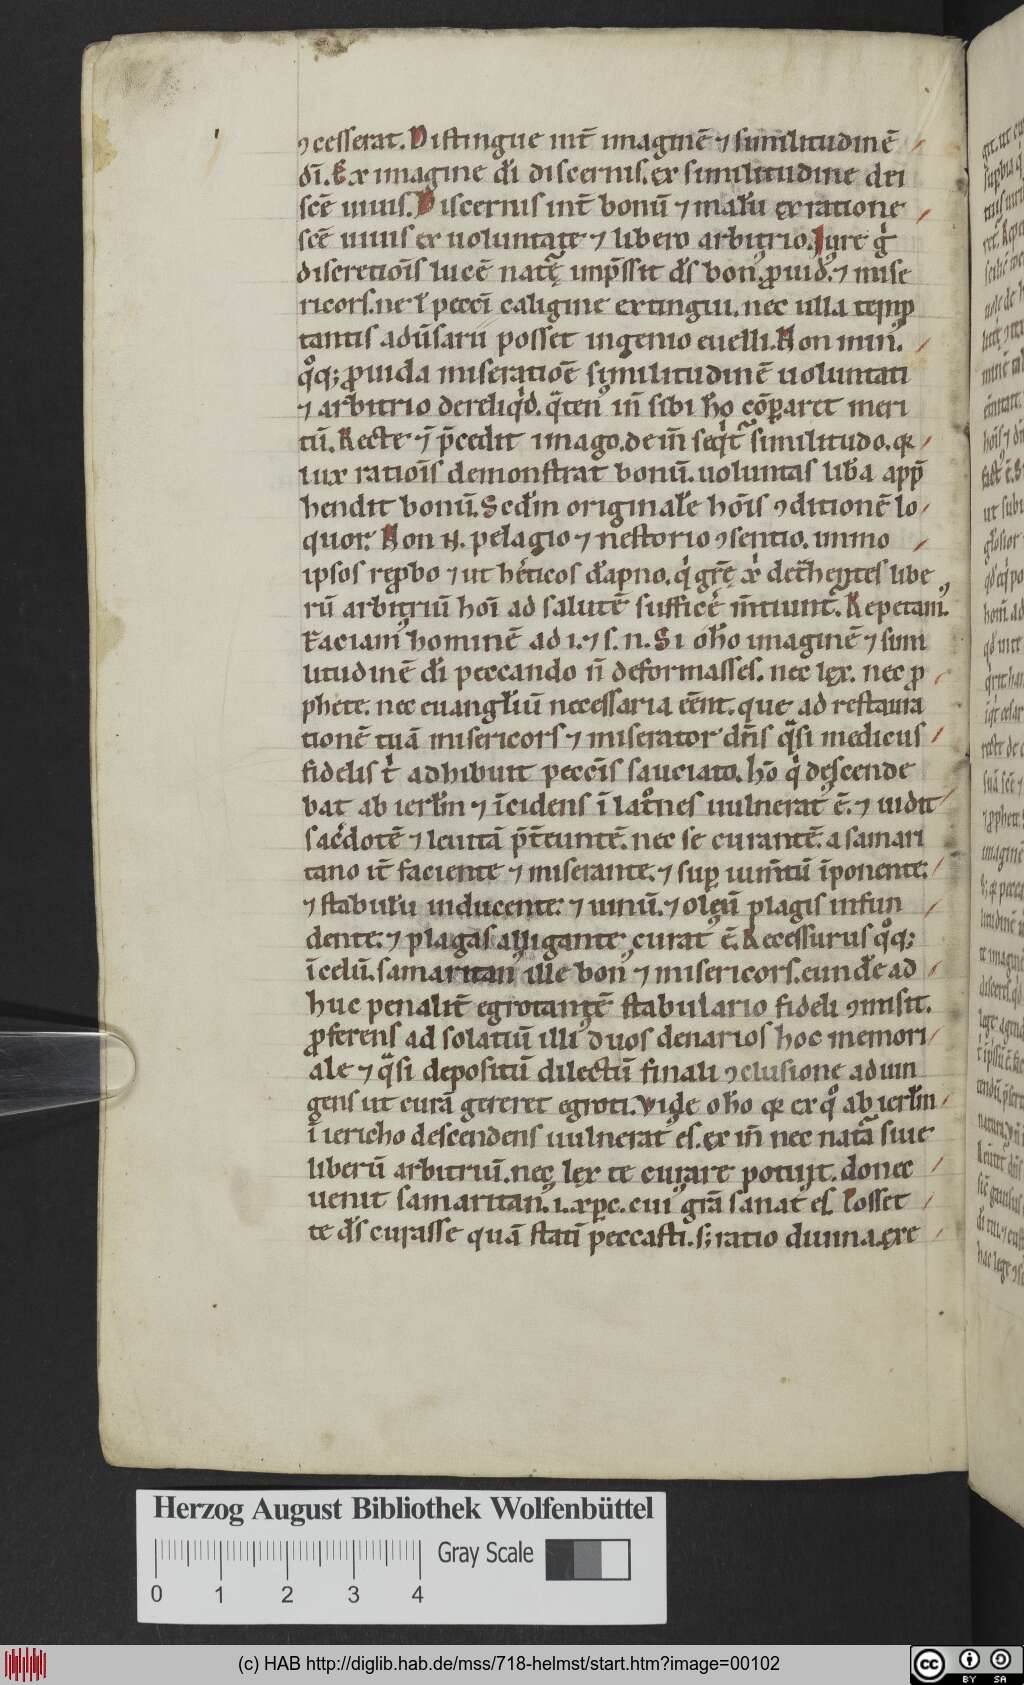 ꝯcesserat. Distingue int̄ imaginē ⁊ similitudinē
dī. Ex imagine di̅ discernis. ex similitudine dei
scē uiuis. Discernis int̄ bonū ⁊ malu̅ ex ratione
scē uiuis ex uoluntate ⁊ libero arbitrio. Iure gͥ
discretiōis lucē natę̄ imp̄ssit ds̅ bonꝰ. ꝓuidꝰ. ⁊ mise
ricors. ne ł pecci̅ caligine extingui. nec ulla temp
tantis adūsarii posset ingenio euelli. Non minꝰ.
qͦq; ꝓuida miseratiōe similitudinē uoluntati
⁊ arbitrio dereliqͥd. qͣtenꝰ in̄ sibi ho̅ cōpararet meri
tū. Recte .n̄. p̄cedit imago. dein̄ seqͥtͬ similitudo. qꝛ
lux ratiōis demonstrat bonū. uoluntas lib̄a app̄
hendit bonū. Sed in originale ho̅is ꝯditionē lo
quor. Non .N. pelagio ⁊ nestorio ꝯsentio. immo
ipsos reꝓbo ⁊ ut heͬticos da̅pno. qͥ gr̄ę xͥ detͬhentes libe
rū arbitriū hoī ad salutē sufficeͬ m̄tiuntͬ. Repetamꝰ.
Faciamꝰ hominē ad .i. ⁊ s. n. Si o ho̅ imaginē ⁊ simi
litudinē di̅ peccando n̄ deformasses. nec lex. nec ꝓ
phete. nec euanglīu̅ necessaria eēnt. que ad restaura
tionē tuā misericors ⁊ miserator dn̄s qͣsi medicus
fidelis tͥ adhibuit peccīs sauciato. ho̅ qͥ descende
bat ab ierlm̄ ⁊ īcidens ī latͦnes uulneratꝰ ē. ⁊ uidit
sacͬdotē ⁊ leuitā p̄t̄euntē. nec se curantē. a samari
tano it̄ faciente ⁊ miserante. ⁊ suꝑ ium̄tū īponente.
⁊ stabulu̅ inducente. ⁊ uinū. ⁊ oleū plagis infun
dente. ⁊ plagas alligante curatꝰ ē. Recessurus qͦq;
ī celū. samaritanꝰ ille bonꝰ ⁊ misericors. eunde̅ ad
huc penalit̄ egrotantē stabulario fideli ꝯmisit.
ꝓferens ad solatiū illiꝰ duos denarios hoc memori
ale ⁊ qͣsi depositū dilectū finali ꝯclusione adiun
gens ut curā gereret egroti. Vide o ho̅ qꝛ ex qͦ ab ierlm̄
ī iericho descendens uulneratꝰ es. ex in̄ nec natͣā siue
liberū arbitriū. nec lex te curare potuit. donec
uenit samaritanꝰ .i. xp̄c. cuiꝰ grā sanatꝰ es. Posset
te ds̅ curasse quā statī peccasti. s; ratio diuina. ere
Herzog August Bibliothek Wolfenbüttel
Gray Scale
0 1 2 3 4
(c) HAB http://diglib.hab.de/mss/718-helmst/start.htm?image=00102
cc BY SA